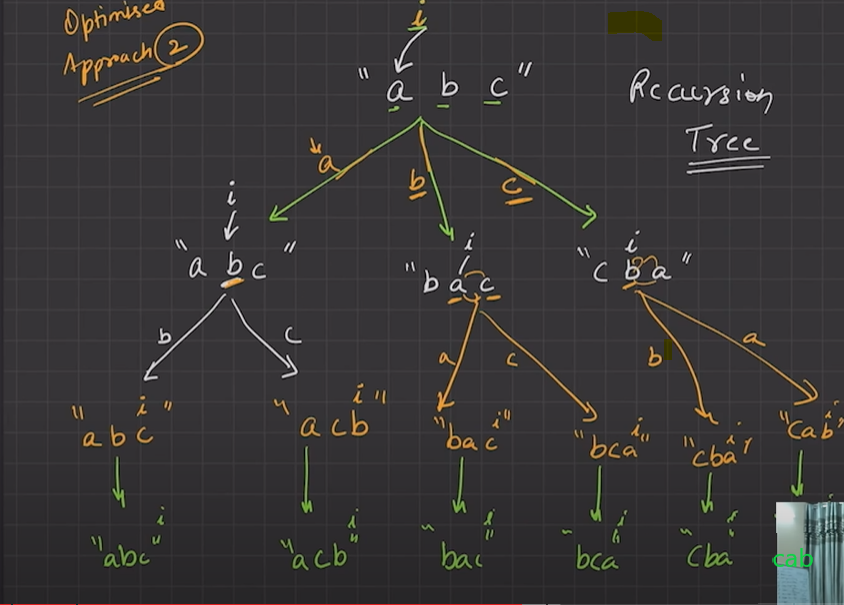 Optimised
Approach 2
i
"a b c"
Recursion
Tree
a
b
c
i
"a b c"
i
"b a c"
i
"c b a"
b
c
a
c
b
a
i
"abc"
i
"acb"
i
"bac"
i
"bca"
i
"cba"
i
"cab"
i
"abc"
i
"acb"
i
"bac"
i
"bca"
i
"cba"
cab